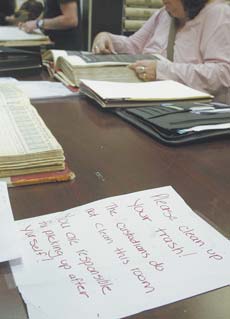 Please clean up
your trash!
The custodians do
not clean this room
You are responsible
to picking up after
yourself!